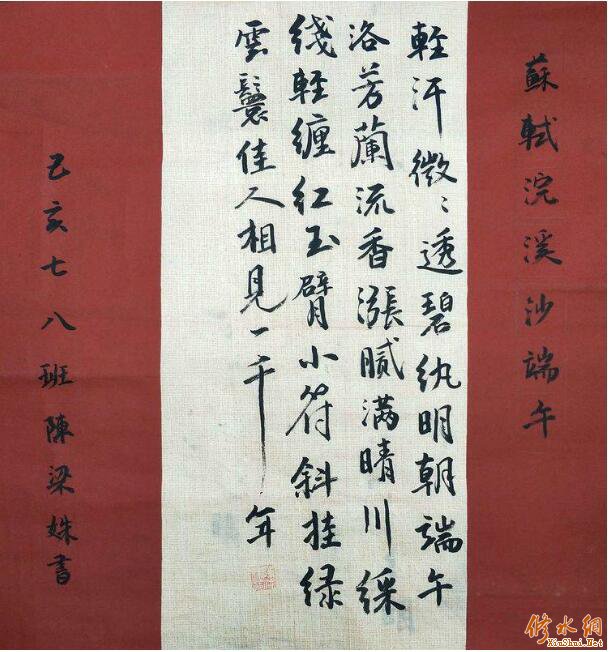 蘇軾浣溪沙端午
輕汗微〻透碧紈明朝端午
洛芳蘭流香漲膩满晴川綵
綫輕缠红玉臂小符斜挂绿
雲鬟佳人相見一千年
己亥七八班陳梁姝書
修水網
XiuShui.Net